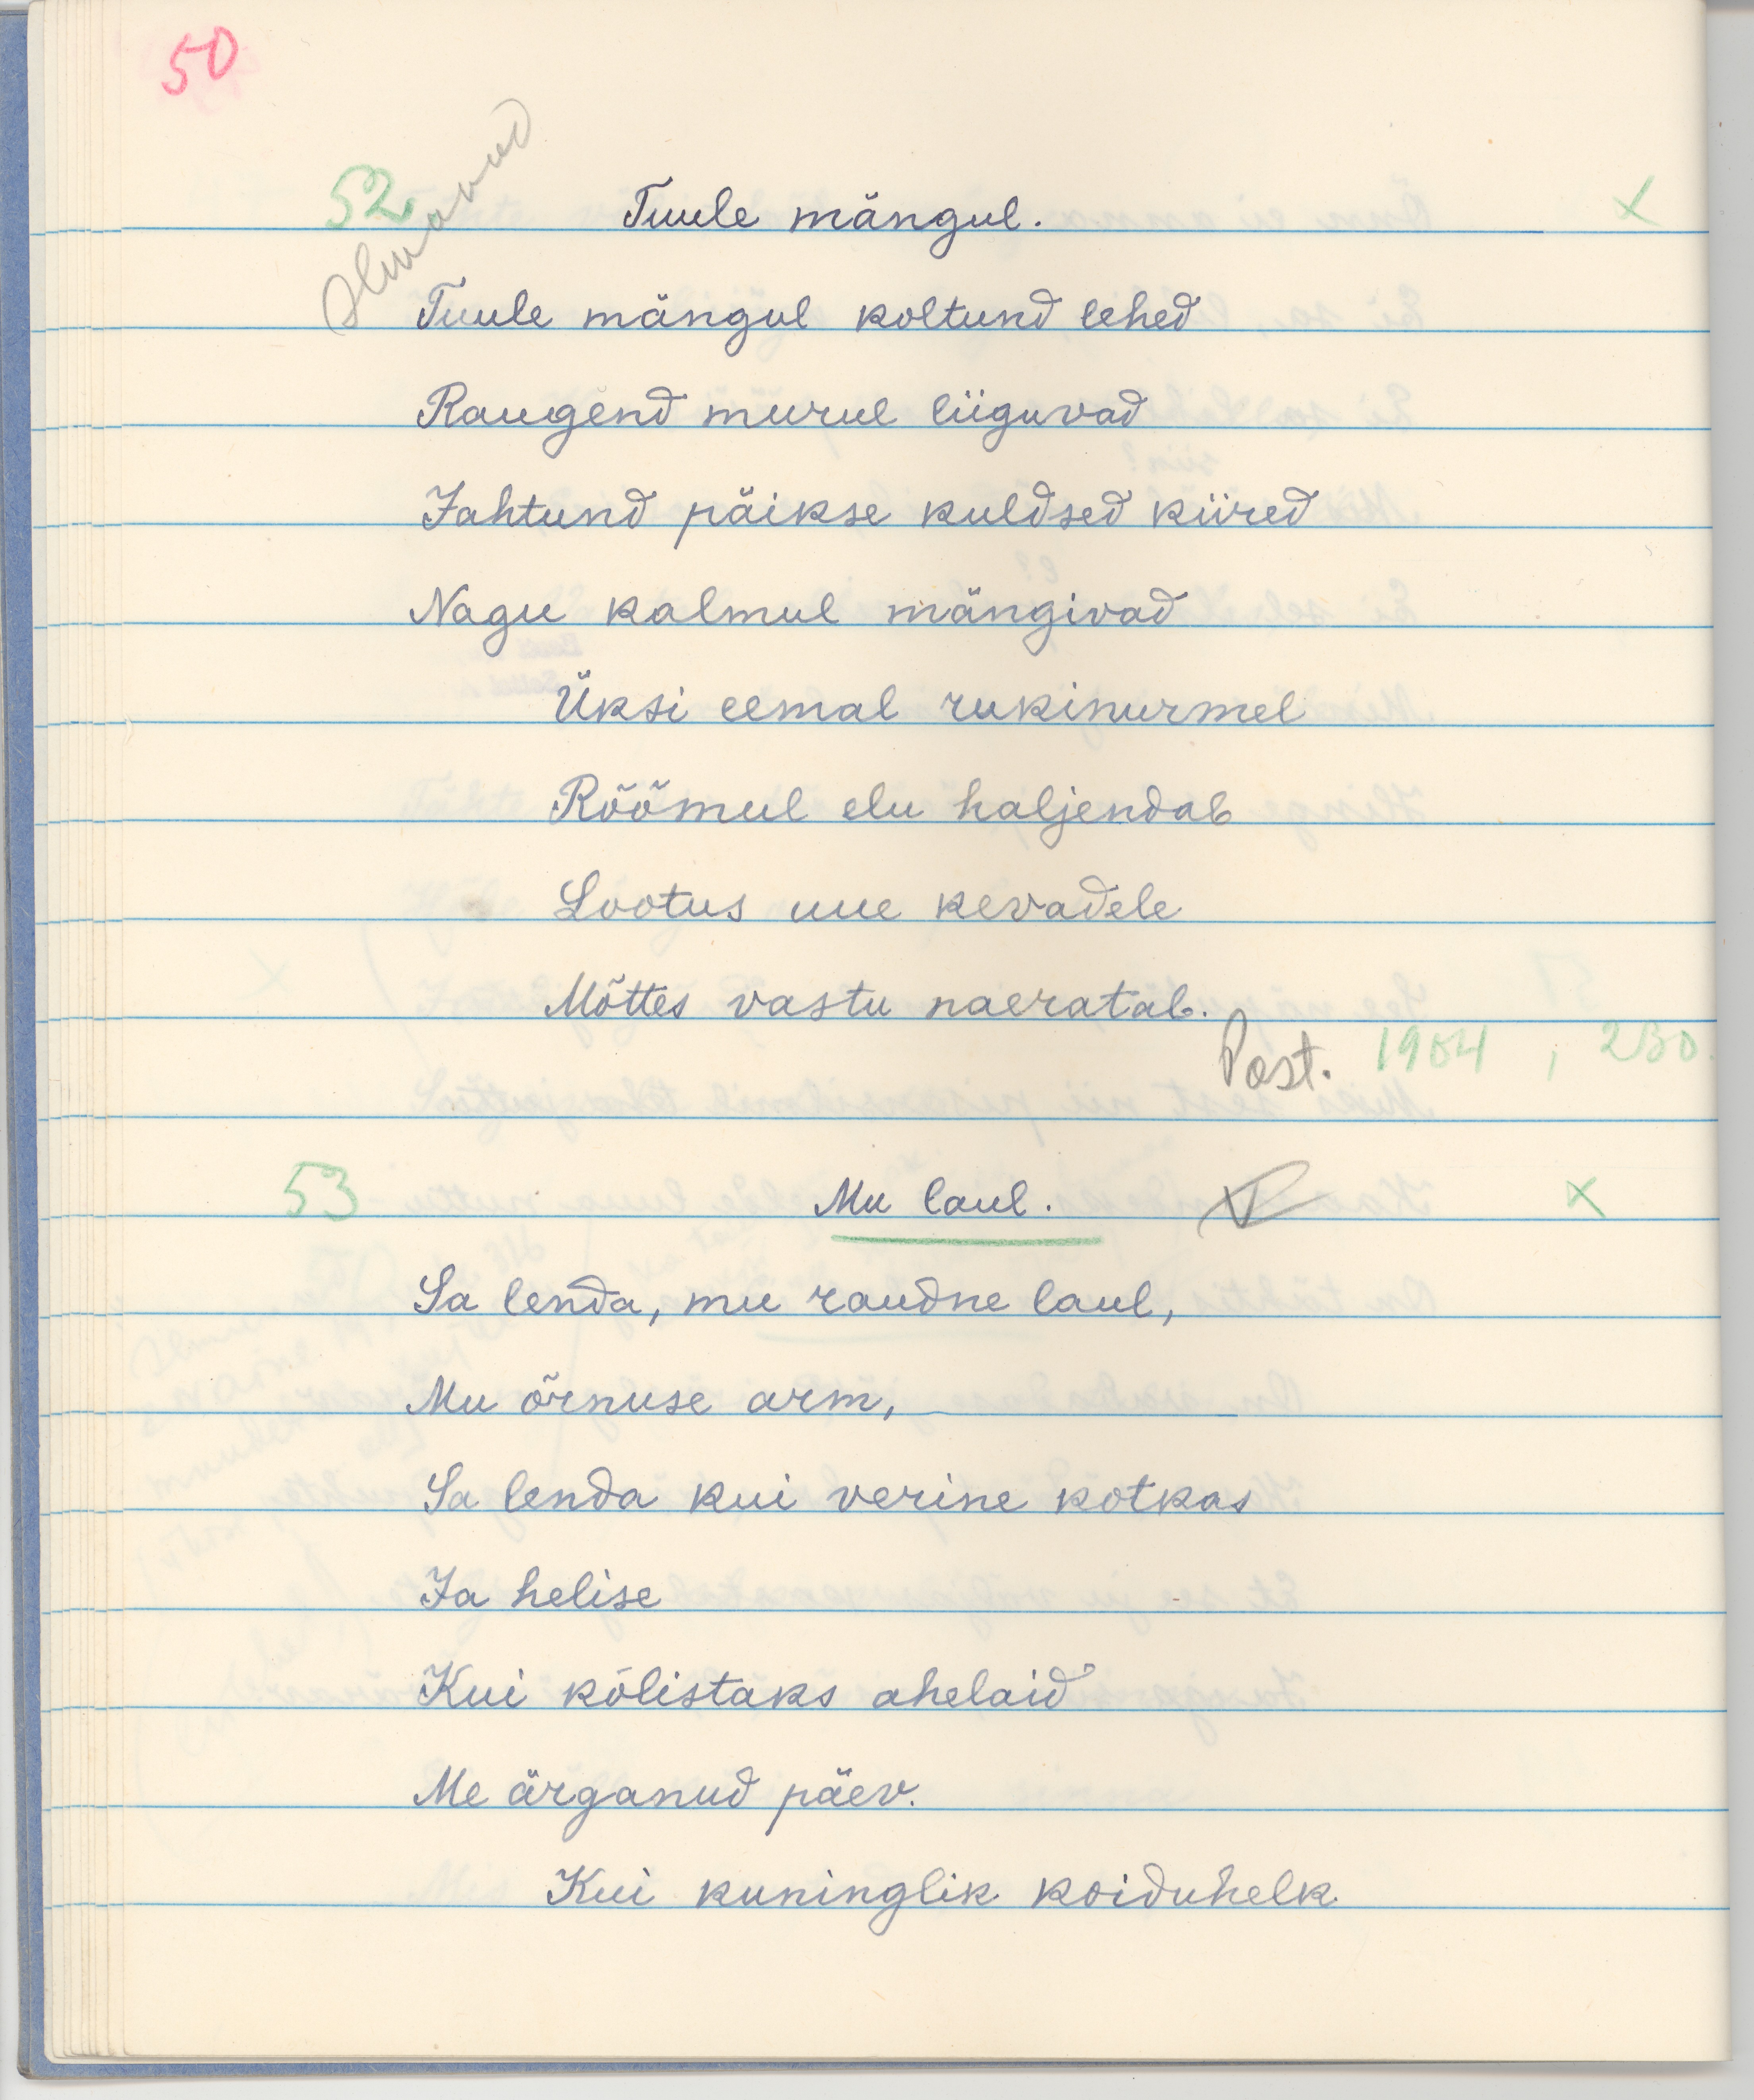 50
52
Ilmanud
Tuule mängul.
x
Tuule mängul koltund lehed
Raugend murul liiguvad
Jahtund päikse kuldsed kiired
Nagu kalmul mängivad
Üksi eemal rukinurmel
Rõõmul elu haljendab
Lootus uue kevadele
Mõttes vastu naeratab.
Post. 1904, 230
53
Mu laul.
V
x
Sa lenda, mu raudne laul,
Mu õrnuse arm,
Sa lenda kui verine kotkas
Ja helise
Kui kõlistaks ahelaid
Me ärganud päev.
Kui kuninglik koiduhelk